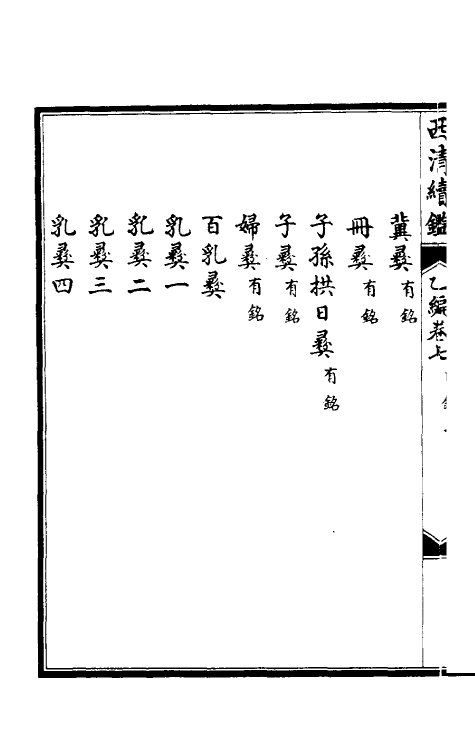 西清續鑑 乙編卷七
冀彝有銘
冊彝有銘
子孫拱日彝有銘
子彝有銘
婦彝有銘
百乳彝
乳彝一
乳彝二
乳彝三
乳彝四